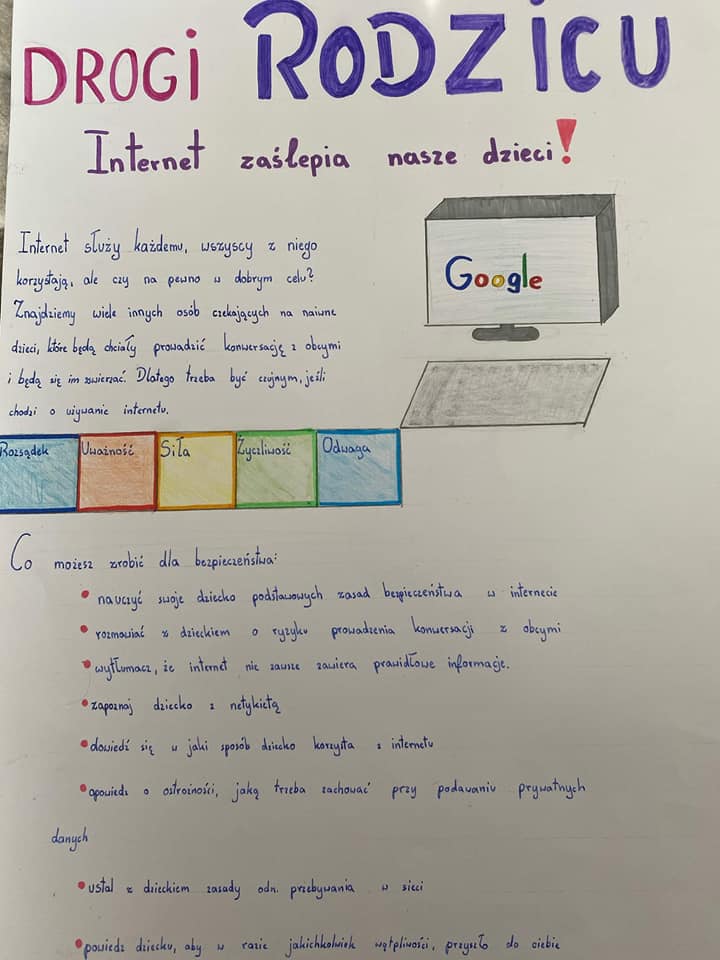 DROGI RODZICU
Internet zaślepia nasze dzieci!
Internet służy każdemu, wszyscy z niego
korzystają, ale czy na pewno w dobrym celu?
Znajdziemy wiele innych osób czekających na naiwne
dzieci, które będą chciały prowadzić konwersację z obcymi
i będą się im zwierzać. Dlatego trzeba być czujnym, jeśli
chodzi o używanie internetu.
Google
Rozsądek Uważność Siła Życzliwość Odwaga
Co możesz zrobić dla bezpieczeństwa:
• nauczyć swoje dziecko podstawowych zasad bezpieczeństwa w internecie
• rozmawiać z dzieckiem o ryzyku prowadzenia konwersacji z obcymi
• wytłumacz, że internet nie zawsze zawiera prawidłowe informacje.
• zapoznaj dziecko z netykietą
• dowiedź się w jaki sposób dziecko korzysta z internetu
• opowiedz o ostrożności, jaką trzeba zachować przy podawaniu prywatnych
danych
• ustal z dzieckiem zasady odn. przebywania w sieci
• powiedz dziecku, aby w razie jakichkolwiek wątpliwości, przyszło do ciebie